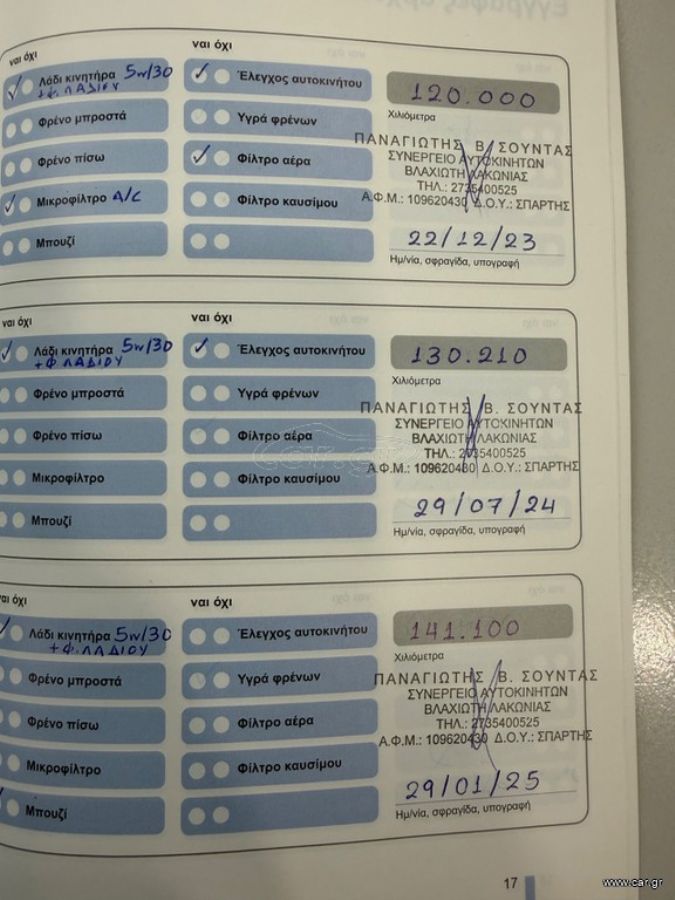 ναι όχι
ναι όχι
Λάδι κινητήρα 5w/30
+ φ. ΛΑΔΙΟΥ
Φρένο μπροστά
Φρένο πίσω
Μικροφίλτρο A/C
Μπουζί
Έλεγχος αυτοκινήτου
Υγρά φρένων
Φίλτρο αέρα
Φίλτρο καυσίμου
120.000
Χιλιόμετρα
ΠΑΝΑΓΙΩΤΗΣ Β. ΣΟΥΝΤΑΣ
ΣΥΝΕΡΓΕΙΟ ΑΥΤΟΚΙΝΗΤΩΝ
ΒΛΑΧΙΩΤΗ ΛΑΚΩΝΙΑΣ
ΤΗΛ.: 2735400525
Α.Φ.Μ.: 109620430 Δ.Ο.Υ.: ΣΠΑΡΤΗΣ
22/12/23
Ημ/νία, σφραγίδα, υπογραφή
ναι όχι
ναι όχι
Λάδι κινητήρα 5w/30
+ Φ ΛΑΔΙΟΥ
Φρένο μπροστά
Φρένο πίσω
Μικροφίλτρο
Μπουζί
Έλεγχος αυτοκινήτου
Υγρά φρένων
Φίλτρο αέρα
Φίλτρο καυσίμου
130.210
Χιλιόμετρα
ΠΑΝΑΓΙΩΤΗΣ Β. ΣΟΥΝΤΑΣ
ΣΥΝΕΡΓΕΙΟ ΑΥΤΟΚΙΝΗΤΩΝ
ΒΛΑΧΙΩΤΗ ΛΑΚΩΝΙΑΣ
ΤΗΛ.: 2735400525
Α.Φ.Μ.: 109620430 Δ.Ο.Υ.: ΣΠΑΡΤΗΣ
29/07/24
Ημ/νία, σφραγίδα, υπογραφή
car.gr
ναι όχι
ναι όχι
Λάδι κινητήρα 5w/30
+ φ. ΛΑΔΙΟΥ
Φρένο μπροστά
Φρένο πίσω
Μικροφίλτρο
Μπουζί
Έλεγχος αυτοκινήτου
Υγρά φρένων
Φίλτρο αέρα
Φίλτρο καυσίμου
141.100
Χιλιόμετρα
ΠΑΝΑΓΙΩΤΗΣ Β. ΣΟΥΝΤΑΣ
ΣΥΝΕΡΓΕΙΟ ΑΥΤΟΚΙΝΗΤΩΝ
ΒΛΑΧΙΩΤΗ ΛΑΚΩΝΙΑΣ
ΤΗΛ.: 2735400525
Α.Φ.Μ.: 109620430 Δ.Ο.Υ.: ΣΠΑΡΤΗΣ
29/01/25
Ημ/νία, σφραγίδα, υπογραφή
17
www.car.gr